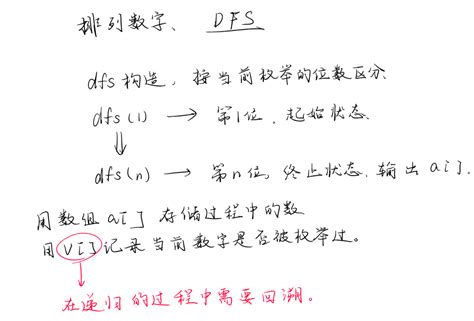 排列数字、 DFS
dfs 构造，按当前枚举的位数区分
dfs(1) → 第1位，起始状态.
dfs(n) → 第n位，终止状态，输出 a[].
用数组 a[] 存储过程中的数
用 v[] 记录当前数字是否被枚举过。
在递归的过程中需要回溯。